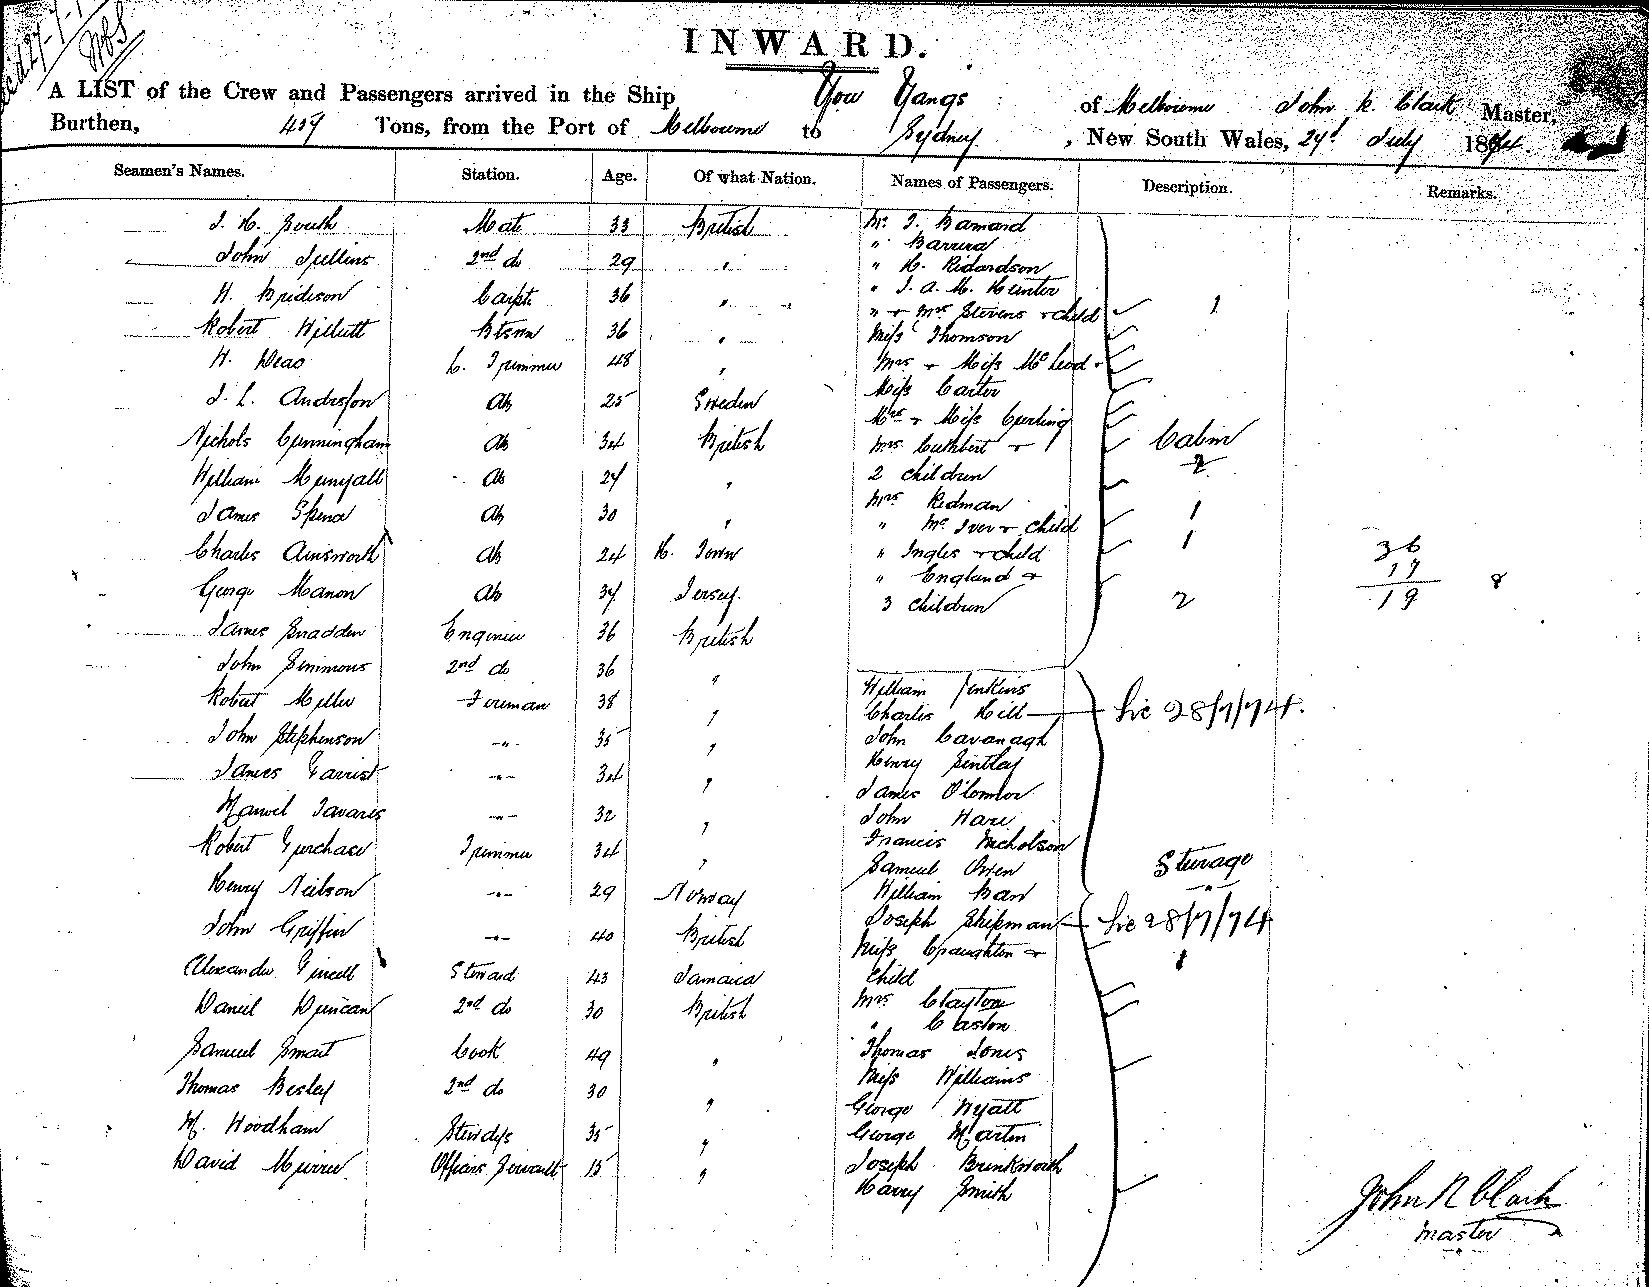 INWARD.
A LIST of the Crew and Passengers arrived in the Ship You Yangs of Melbourne John R. Clark Master,
Burthen, 459 Tons, from the Port of Melbourne to Sydney, New South Wales, 27 July 1874.
Seamen's Names. Station. Age. Of what Nation. Names of Passengers. Description. Remarks.
Mate 33 British Mr. J. Barnard
John 2nd do 29 " " 
" H. Richardson
Carpt. 36 " " J. A. M. Hunter
" + Mrs Stevens + child 1
Robert 36 " Miss Thomson
H. 48 " Mrs + Miss McLeod
Miss Carter
J. L. Anderson Ab 25 Sweden Mrs + Miss Curling
Nichols Cunningham Ab 34 British Mrs Cuthbert + Cabin
William Ab 27 " 2 children 2
Mrs Redman 1
James Spence Ab 30 " " McIver + child
Charles Ainsworth Ab 24 H. Town " Ingles + child 1 36
" England + 17 8
George Manon Ab 37 Jersey. 3 children 2 19
James Engineer 36 British
John Simmons 2nd do 36 "
Robert Miller Fireman 38 " William Jenkins
Charles Hill 28/7/74.
John Stephenson -"- 35 " John Cavanagh
James -"- 34 " Henry
James O'Connor
Manuel Tavares -"- 32 " John Hare
Robert Purchase Trimmer 34 " Francis Nicholson
Samuel Owen Steerage
Henry Neilson -"- 29 Norway William
John Griffin -"- 40 British Joseph Shipman 28/7/74
Miss + 1
Alexander Steward 43 Jamaica child
Daniel Duncan 2nd do 30 British Mrs Clayton
" Caston
Samuel Smart Cook 49 " Thomas Jones
Thomas Besley 2nd do 30 " Miss Williams
George Wyatt
M. Woodham Stewdss 35 " George Martin
David Officers Servant 15 " Joseph Brinkworth
Harry Smith
John R Clark
Master